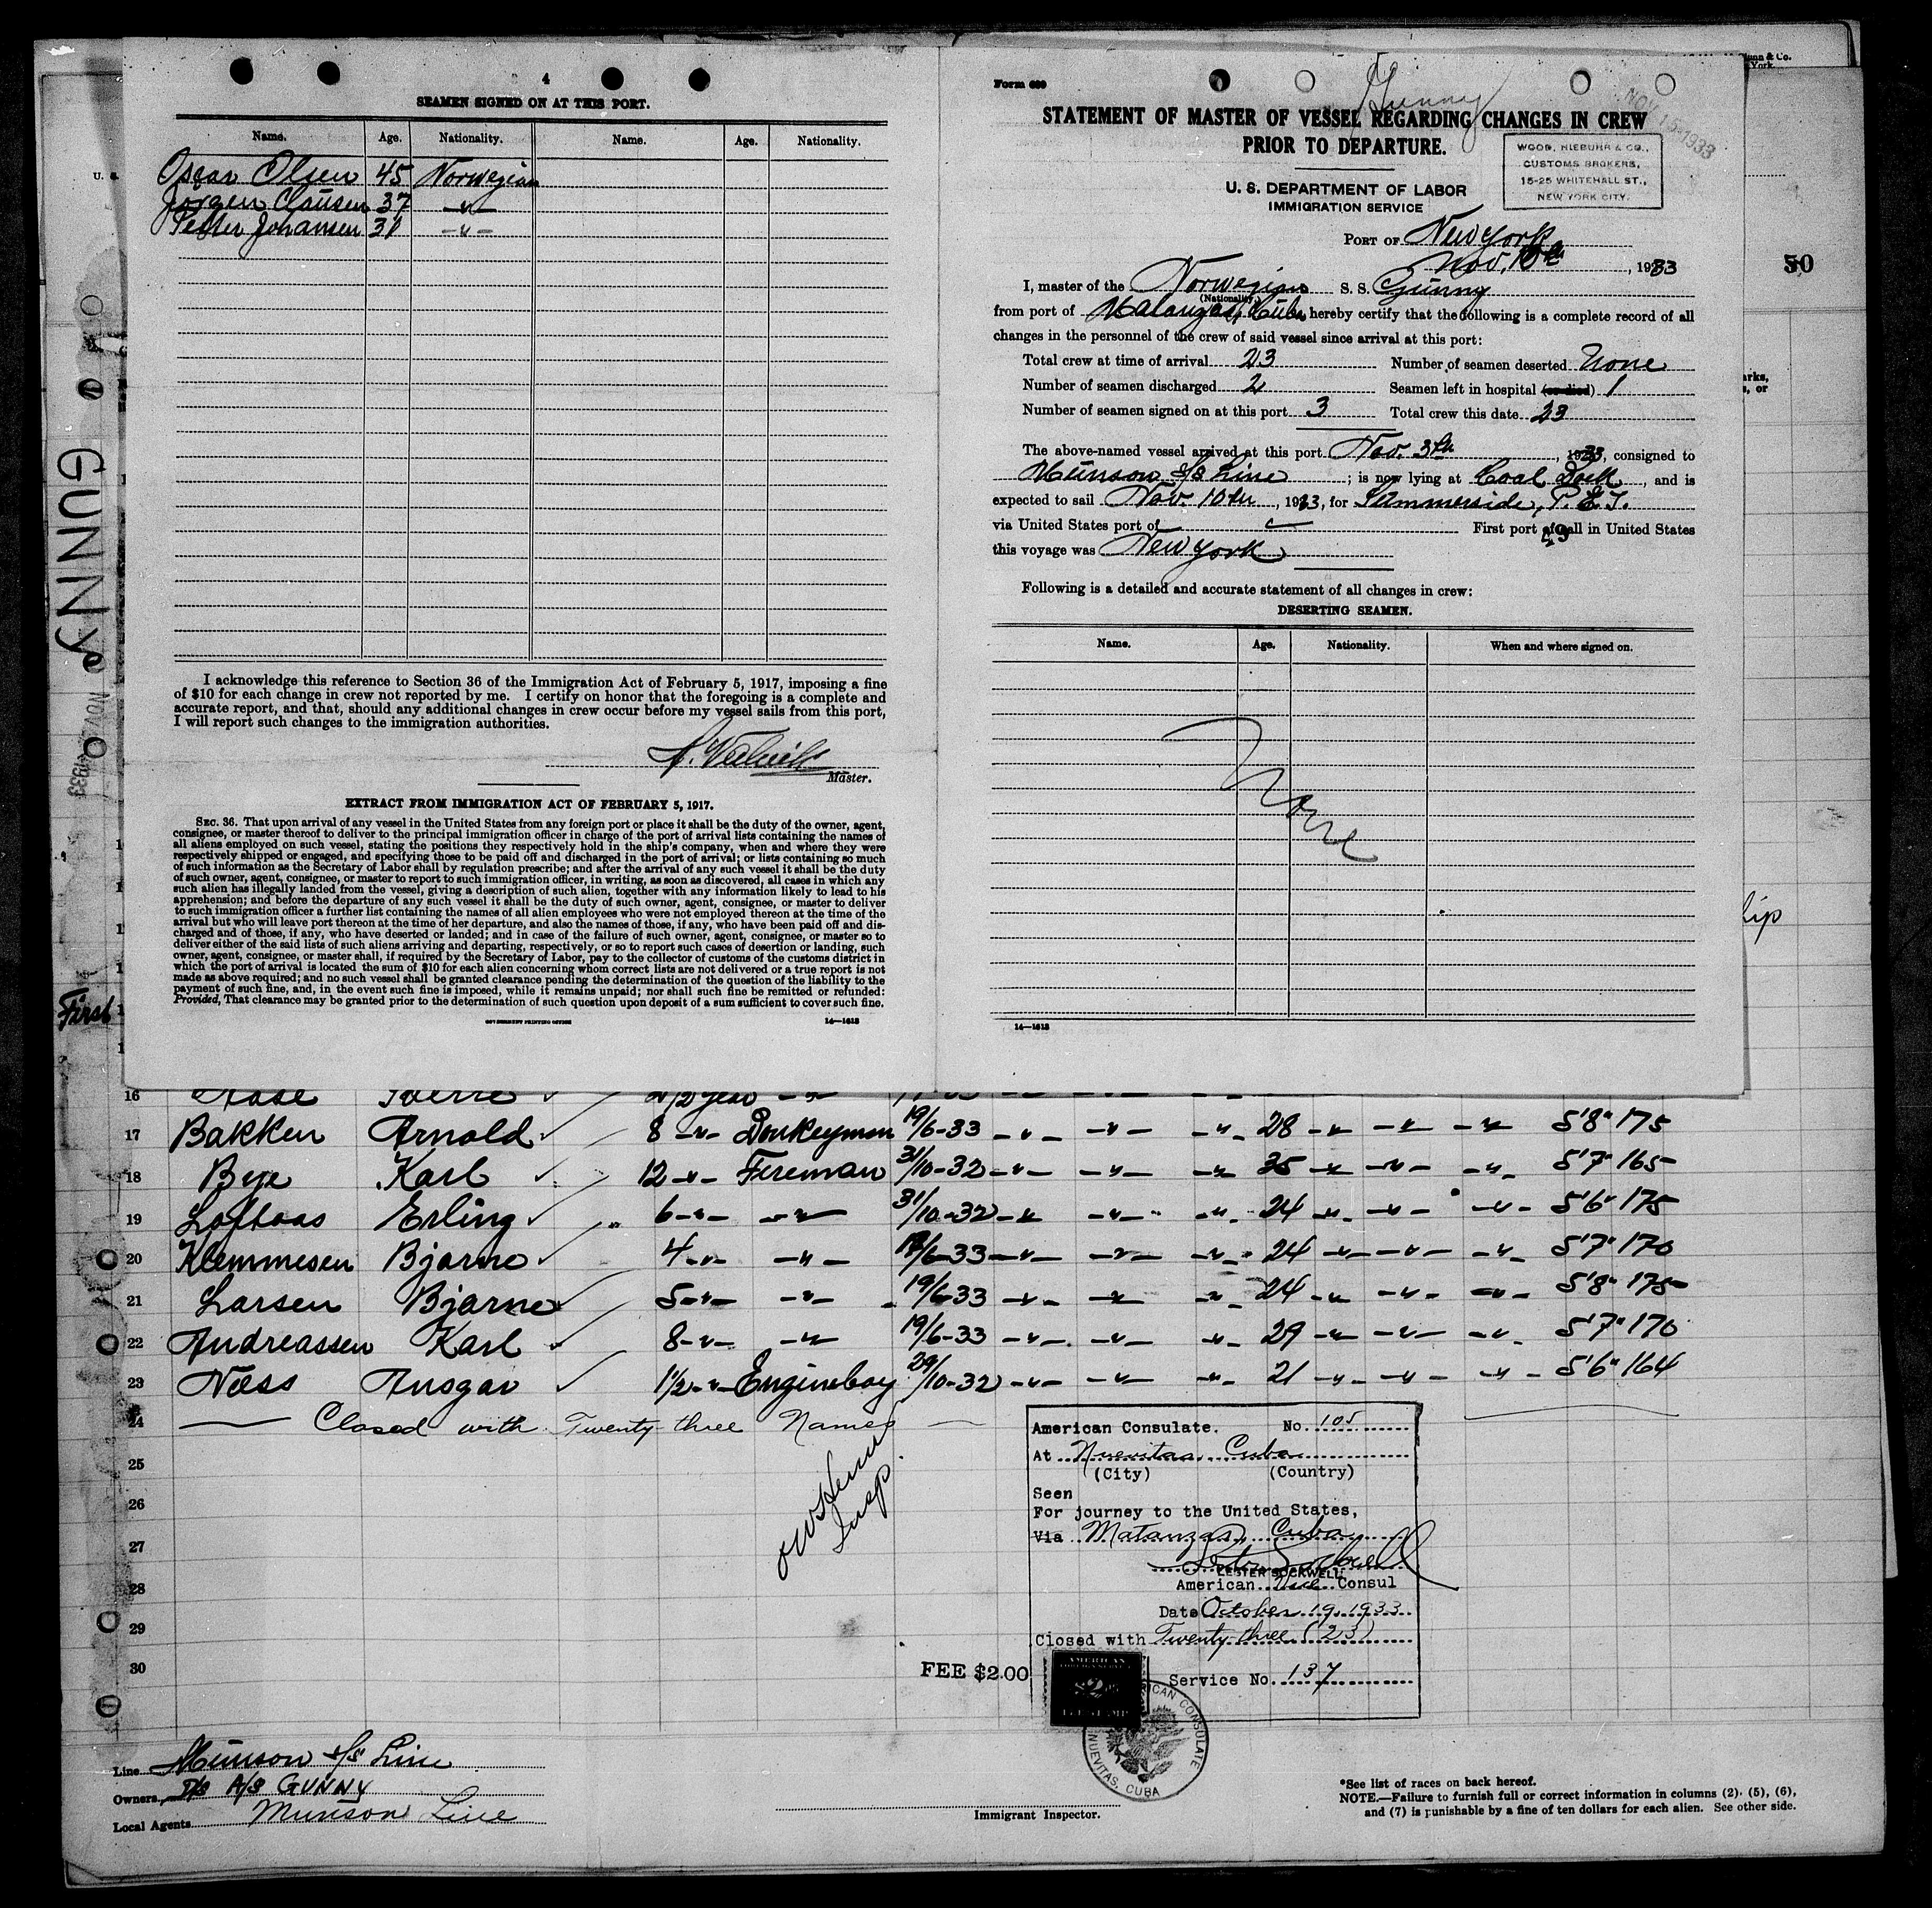 4
SEAMEN SIGNED ON AT THIS PORT.
Name. Age. Nationality. Name. Age. Nationality.
Oscar Olsen 45 Norwegian
Jorgen Clausen 37 -"-
Petter Johansen 31 -"-
I acknowledge this reference to Section 36 of the Immigration Act of February 5, 1917, imposing a fine
of $10 for each change in crew not reported by me. I certify on honor that the foregoing is a complete and
accurate report, and that, should any additional changes in crew occur before my vessel sails from this port,
I will report such changes to the immigration authorities.
Master.
EXTRACT FROM IMMIGRATION ACT OF FEBRUARY 5, 1917.
SEC. 36. That upon arrival of any vessel in the United States from any foreign port or place it shall be the duty of the owner, agent,
consignee, or master thereof to deliver to the principal immigration officer in charge of the port of arrival lists containing the names of
all aliens employed on such vessel, stating the positions they respectively hold in the ship's company, when and where they were
respectively shipped or engaged, and specifying those to be paid off and discharged in the port of arrival; or lists containing so much
of such information as the Secretary of Labor shall by regulation prescribe; and after the arrival of any such vessel it shall be the duty
of such owner, agent, consignee, or master to report to such immigration officer, in writing, as soon as discovered, all cases in which any
such alien has illegally landed from the vessel, giving a description of such alien, together with any information likely to lead to his
apprehension; and before the departure of any such vessel it shall be the duty of such owner, agent, consignee, or master to deliver
to such immigration officer a further list containing the names of all alien employees who were not employed thereon at the time of the
arrival but who will leave port thereon at the time of her departure, and also the names of those, if any, who have been paid off and dis-
charged and of those, if any, who have deserted or landed; and in case of the failure of such owner, agent, consignee, or master so to
deliver either of the said lists of such aliens arriving and departing, respectively, or so to report such cases of desertion or landing, such
owner, agent, consignee, or master shall, if required by the Secretary of Labor, pay to the collector of customs of the customs district in
which the port of arrival is located the sum of $10 for each alien concerning whom correct lists are not delivered or a true report is not
made as above required; and no such vessel shall be granted clearance pending the determination of the question of the liability to the
payment of such fine, and, in the event such fine is imposed, while it remains unpaid; nor shall such fine be remitted or refunded:
Provided, That clearance may be granted prior to the determination of such question upon deposit of a sum sufficient to cover such fine.
GOVERNMENT PRINTING OFFICE 14—1613
Form 689
Gunny
NOV 15 1933
STATEMENT OF MASTER OF VESSEL REGARDING CHANGES IN CREW
PRIOR TO DEPARTURE.
WOOD, NIEBUHR & CO.,
CUSTOMS BROKERS,
15-25 WHITEHALL ST.,
NEW YORK CITY.
U. S. DEPARTMENT OF LABOR
IMMIGRATION SERVICE
PORT OF New York
Nov. 10th, 1933
I, master of the Norwegian S. S. Gunny
(Nationality)
from port of Matanzas, Cuba hereby certify that the following is a complete record of all
changes in the personnel of the crew of said vessel since arrival at this port:
Total crew at time of arrival 23 Number of seamen deserted None
Number of seamen discharged 2 Seamen left in hospital (or died) 1
Number of seamen signed on at this port 3 Total crew this date 23
The above-named vessel arrived at this port Nov. 3th, 1933, consigned to
Munson S/S Line; is now lying at Coal Dock, and is
expected to sail Nov. 10th, 1933, for Summerside, P.E.I.
via United States port of First port of call in United States
49
this voyage was New York
Following is a detailed and accurate statement of all changes in crew:
DESERTING SEAMEN.
Name. Age. Nationality. When and where signed on.
None
14—1613
50
GUNNY
NOV 1933
First
16 Aase Sverre 2 1/2 year -"-
17 Bakken Arnold 8 -"- Donkeyman 19/6-33 -"- -"- -"- 28 -"- -"- -"- 5'8" 175
18 Bye Karl 12 -"- Fireman 31/10-32 -"- -"- -"- 35 -"- -"- -"- 5'7" 165
19 Loftaas Erling 6 -"- -"- 31/10-32 -"- -"- -"- 24 -"- -"- -"- 5'6" 175
20 Klemmesen Bjarne 4 -"- -"- 19/6-33 -"- -"- -"- 24 -"- -"- -"- 5'7" 170
21 Larsen Bjarne 5 -"- -"- 19/6-33 -"- -"- -"- 24 -"- -"- -"- 5'8" 175
22 Andreassen Karl 8 -"- -"- 19/6-33 -"- -"- -"- 29 -"- -"- -"- 5'7" 170
23 Næss Ansgar 1 1/2 -"- Engineboy 29/10-32 -"- -"- -"- 21 -"- -"- -"- 5'6" 164
24 Closed with Twenty three Names
25
26
27
28
29
30
Insp
American Consulate. No. 105
At Nuevitas Cuba
(City) (Country)
Seen
For journey to the United States,
Via Matanzas, Cuba
LESTER SOCKWELL
American Vice Consul
Date October 19, 1933
Closed with Twenty-three (23)
FEE $2.00
Service No. 137
AMERICAN CONSULATE
NUEVITAS, CUBA
Line Munson S/S Line
Owners D/S A/S GUNNY
Local Agents Munson Line
Immigrant Inspector.
*See list of races on back hereof.
NOTE.—Failure to furnish full or correct information in columns (2), (5), (6),
and (7) is punishable by a fine of ten dollars for each alien. See other side.